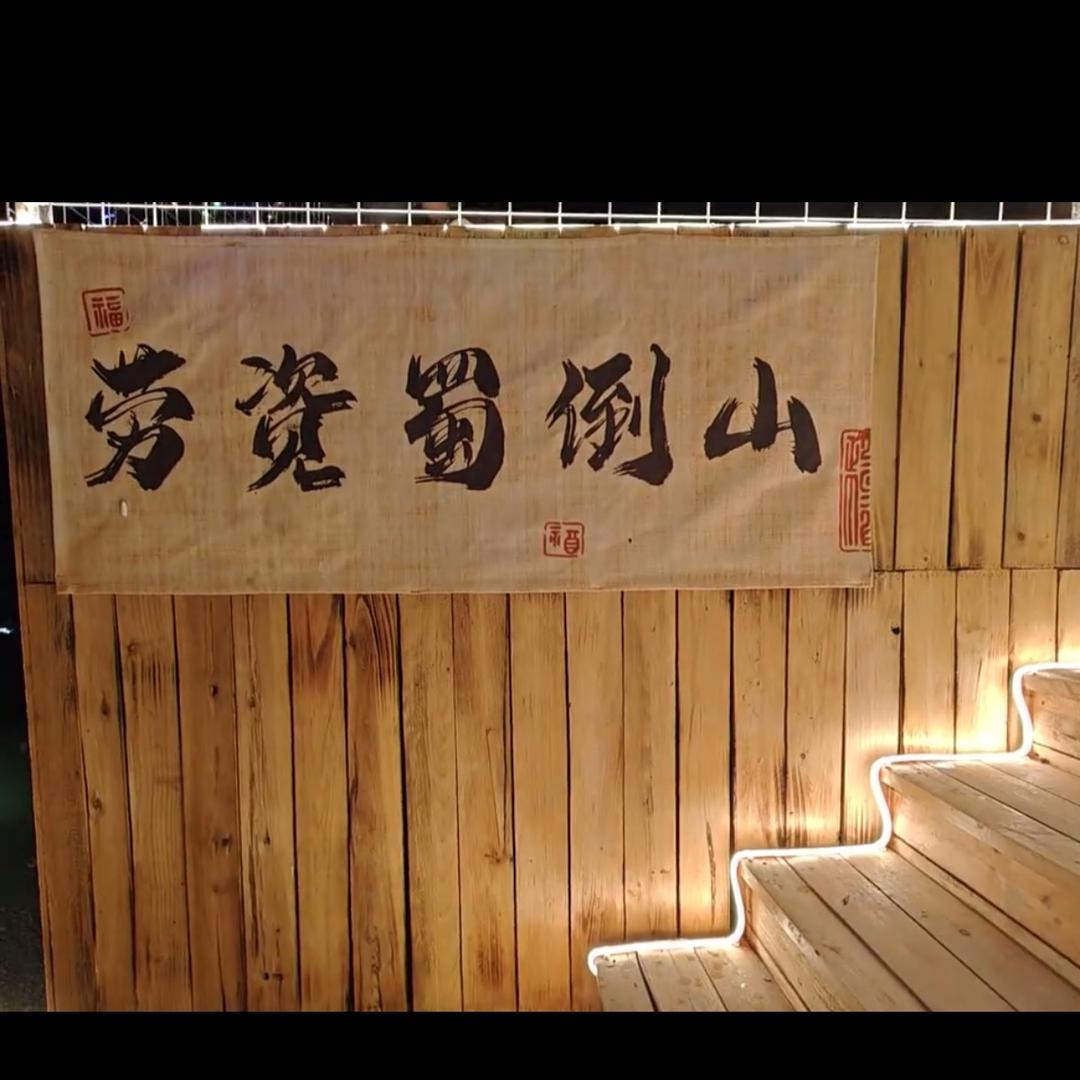 福
劳资蜀倒山